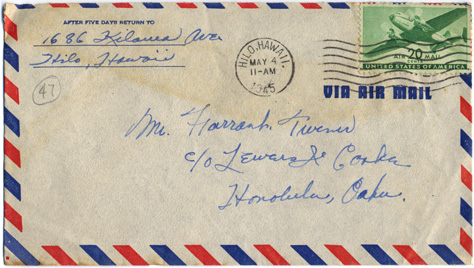 AFTER FIVE DAYS RETURN TO
1686 Kilauea Ave
Hilo, Hawaii
HILO, HAWAII.
MAY 4
11-AM
1945
20¢
AIR MAIL
UNITED STATES OF AMERICA
VIA AIR MAIL
47
Mr. Farrant Turner
c/o Lewers & Cooke
Honolulu, Oahu.